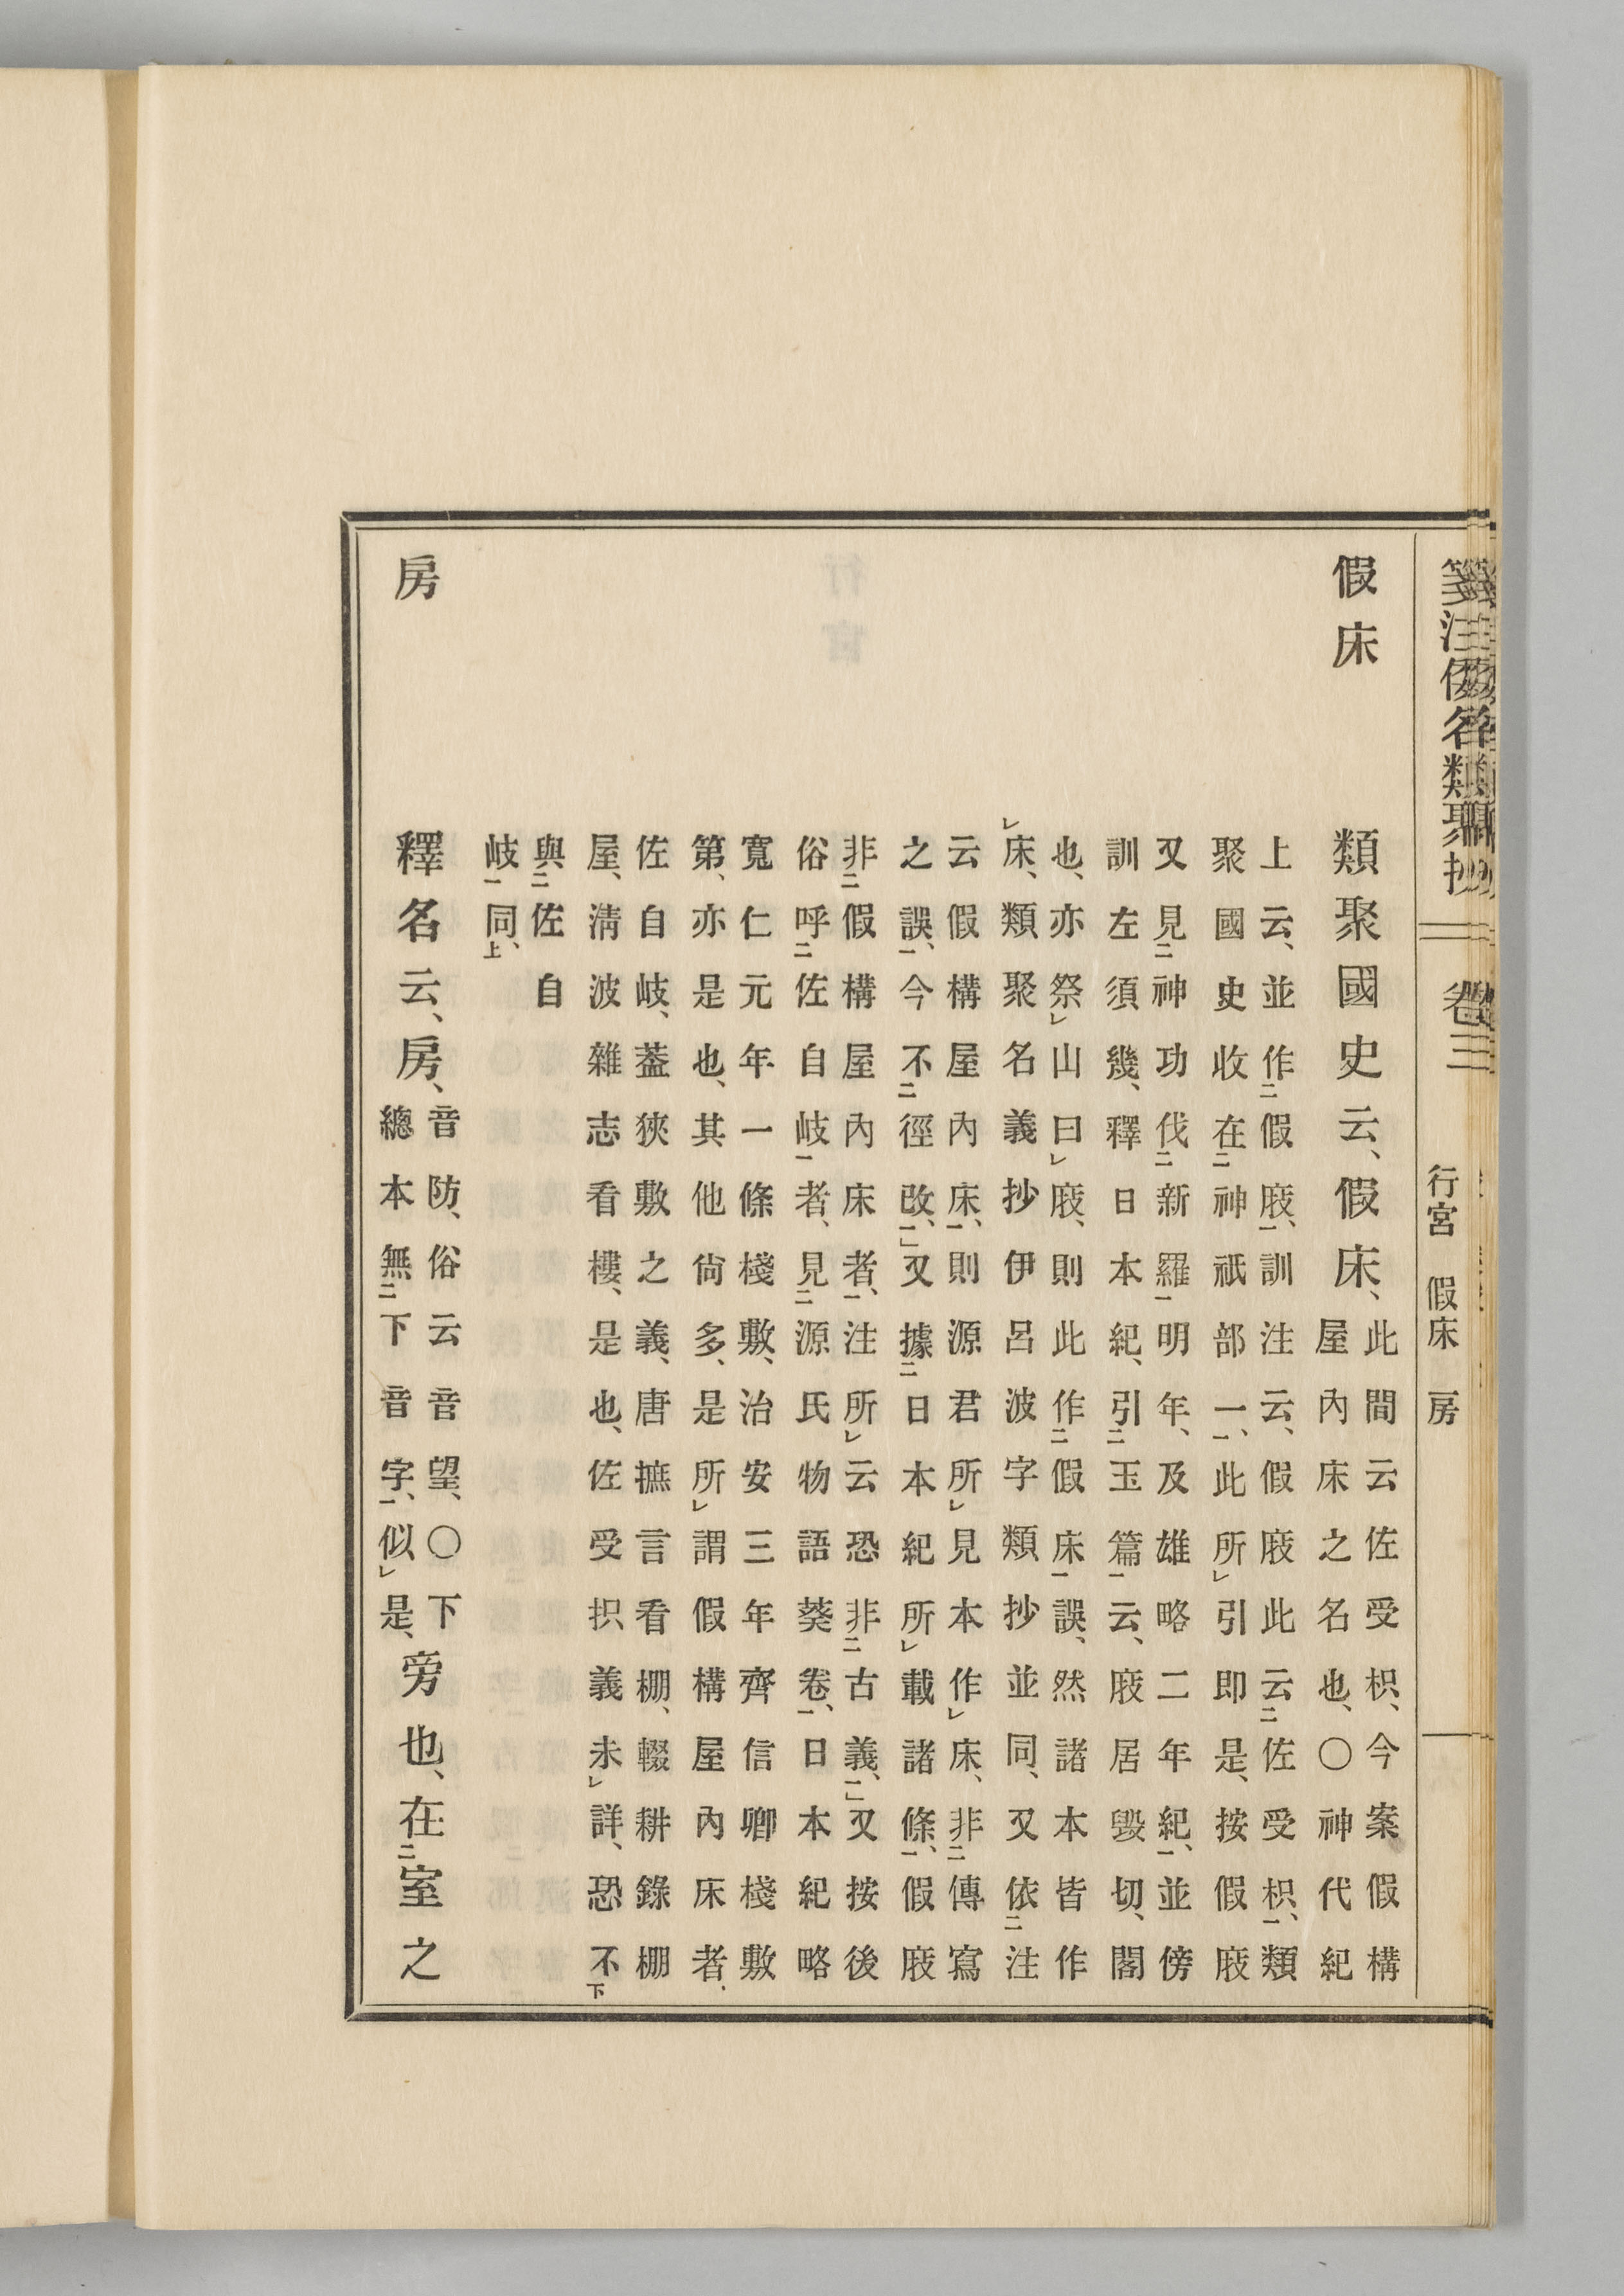 箋注倭名類聚抄 卷三 行宮 假床 房
假床 類聚國史云、假床、此間云佐受枳、今案假構
屋內床之名也、〇神代紀
上云、並作二假庪一、訓注云、假庪此云二佐受枳一、類
聚國史收在二神祇部一、此所レ引即是、按假庪
又見二神功伐二新羅一明年、及雄略二年紀一、並傍
訓左須幾、釋日本紀、引二玉篇一云、庪居毀切、閣
也、亦祭レ山曰レ庪、則此作二假床一誤、然諸本皆作
レ床、類聚名義抄伊呂波字類抄並同、又依二注
云假構屋內床一、則源君所レ見本作レ床、非二傳寫
之誤一、今不二徑改一、」又據二日本紀所レ載諸條一、假庪
非二假構屋內床者一、注所レ云恐非二古義一、」又按後
俗呼二佐自岐一者、見二源氏物語葵卷一、日本紀略
寬仁元年一條棧敷、治安三年齊信卿棧敷
第、亦是也、其他尙多、是所レ謂假構屋內床者、
佐自岐、葢狹敷之義、唐摭言看棚、輟耕錄棚
屋、淸波雜志看樓、是也、佐受枳義未レ詳、恐不下
與二佐自
岐一同上、
房 釋名云、房、音防、俗云音望、〇下
總本無二下音字一、似レ是、旁也、在二室之